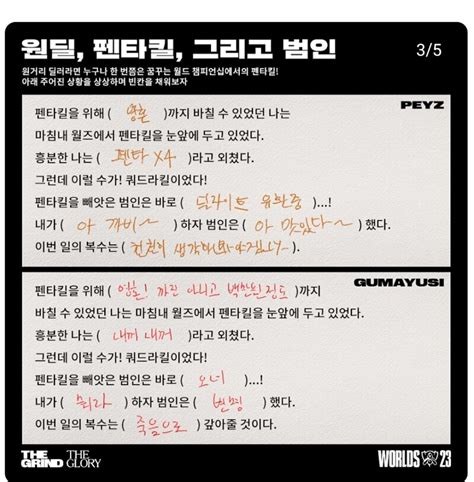 원딜, 펜타킬, 그리고 범인
3/5
원거리 딜러라면 누구나 한 번쯤은 꿈꾸는 월드 챔피언십에서의 펜타킬!
아래 주어진 상황을 상상하며 빈칸을 채워보자
PEYZ
펜타킬을 위해 ( 영혼 )까지 바칠 수 있었던 나는
마침내 월즈에서 펜타킬을 눈앞에 두고 있었다.
흥분한 나는 ( 펜타 X4 )라고 외쳤다.
그런데 이럴 수가! 쿼드라킬이었다!
펜타킬을 빼앗은 범인은 바로 ( 딜라이트 유환중 )...!
내가 ( 아 까비~ ) 하자 범인은 ( 아 맛있다~ ) 했다.
이번 일의 복수는 ( 천천히 생각해봐야겠다~ ).
GUMAYUSI
펜타킬을 위해 ( 영혼! 까진 아니고 백만원정도 )까지
바칠 수 있었던 나는 마침내 월즈에서 펜타킬을 눈앞에 두고 있었다.
흥분한 나는 ( 내꺼 내꺼 )라고 외쳤다.
그런데 이럴 수가! 쿼드라킬이었다!
펜타킬을 빼앗은 범인은 바로 ( 오너 )...!
내가 ( 뭐라 ) 하자 범인은 ( 빈정 ) 했다.
이번 일의 복수는 ( 죽음으로 ) 갚아줄 것이다.
THE GRIND THE GLORY
WORLDS 23